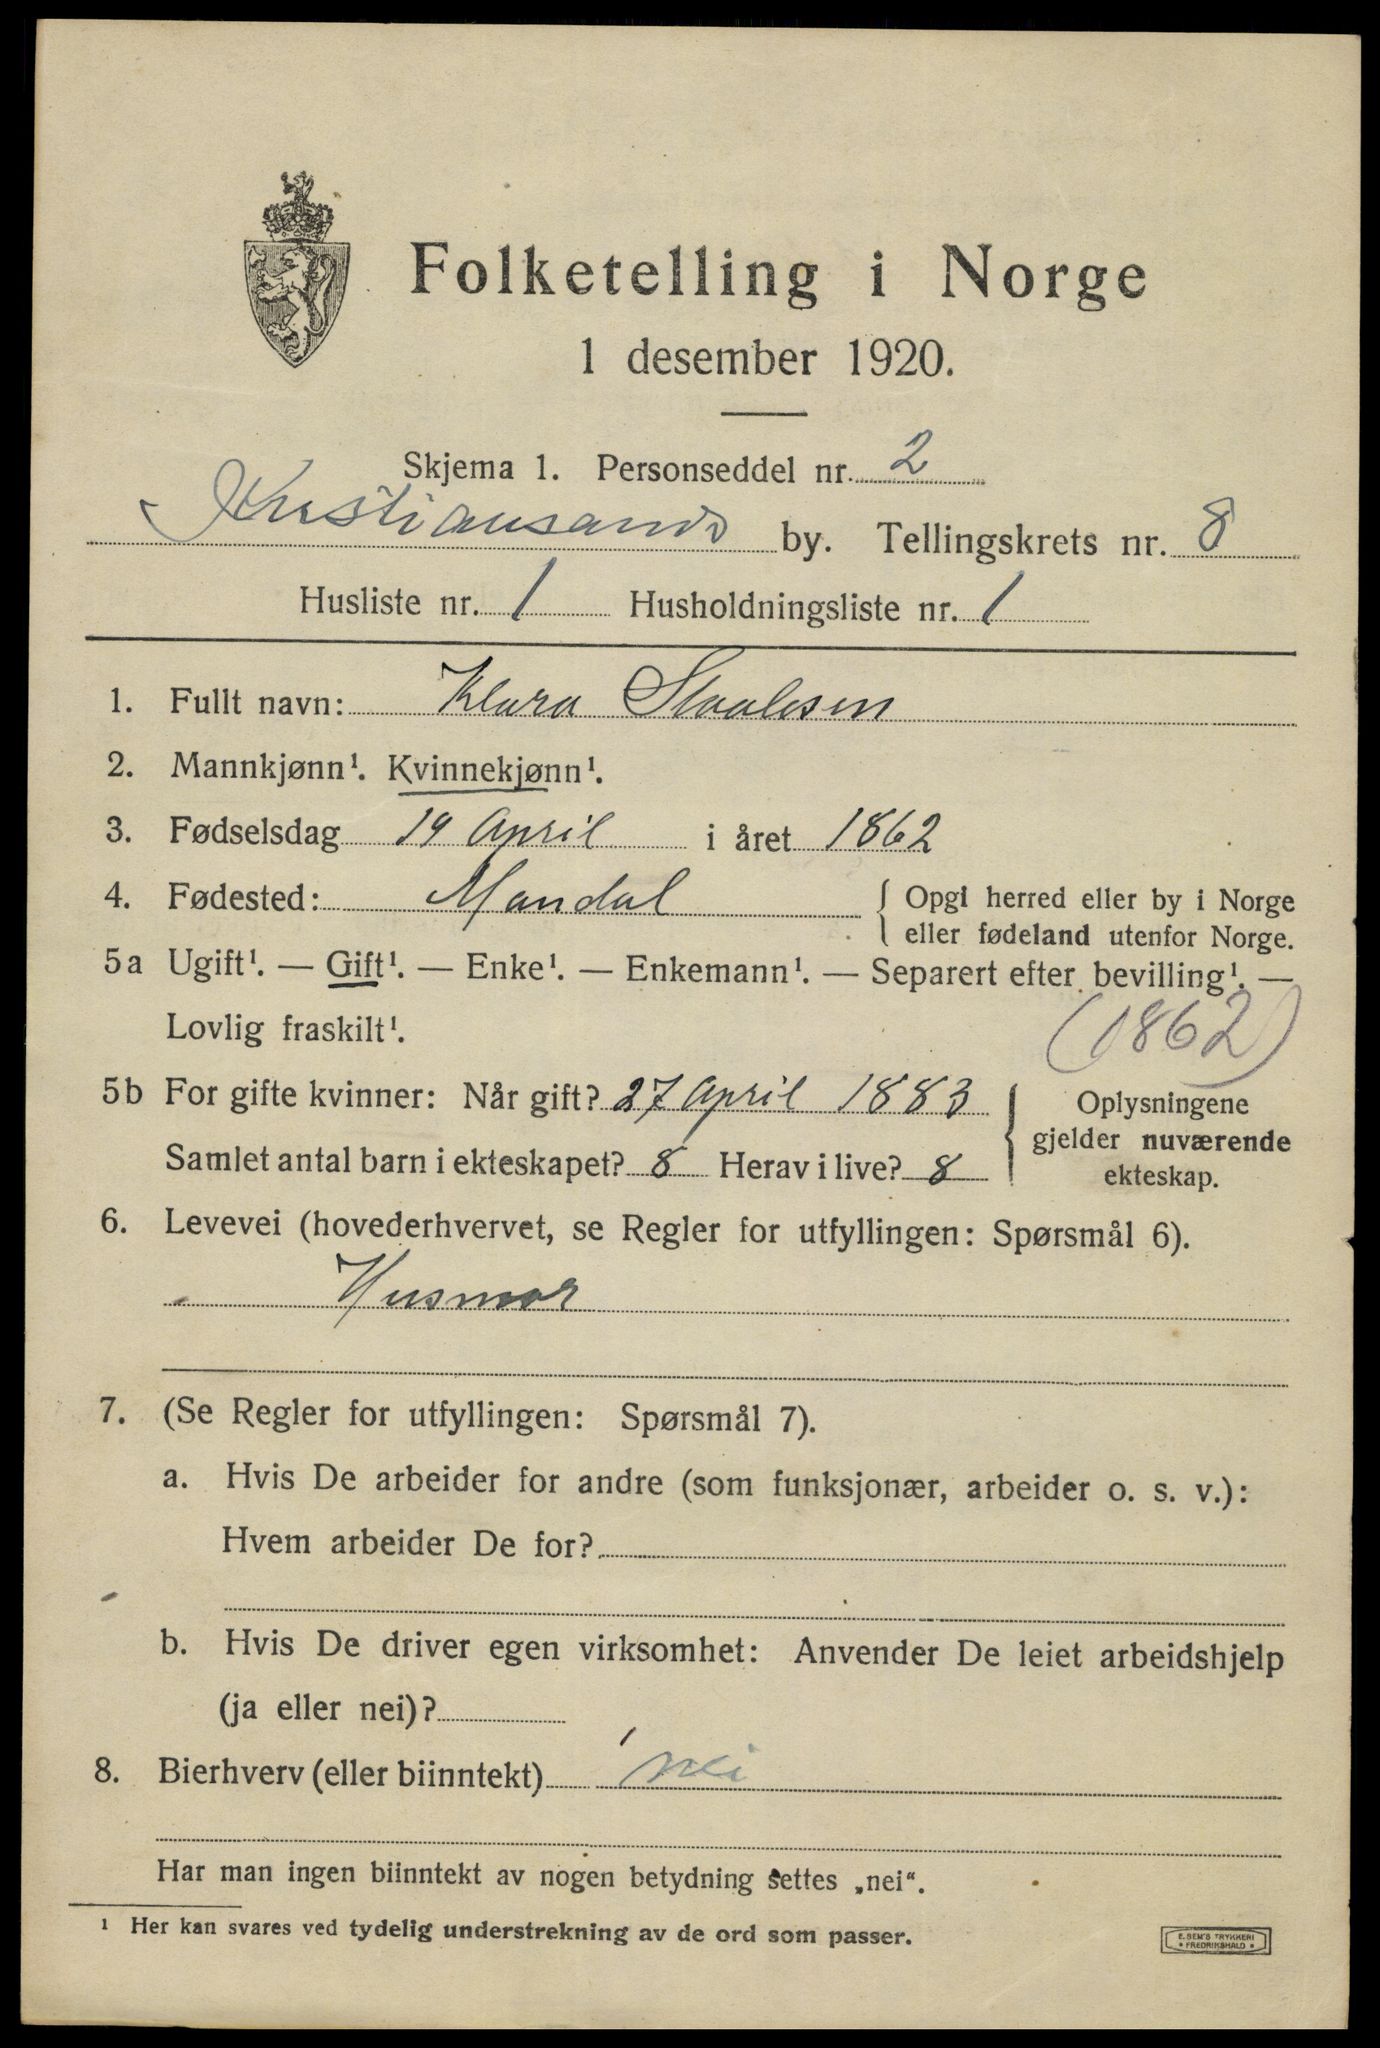 Folketelling i Norge
1 desember 1920.
Skjema 1. Personseddel nr. 2
Kristiansands by. Tellingskrets nr. 8
Husliste nr. 1 Husholdningsliste nr. 1
1. Fullt navn: Klara Staalesen
2. Mannkjønn¹. Kvinnekjønn¹.
3. Fødselsdag 19 April i året 1862
4. Fødested: Mandal { Opgi herred eller by i Norge
eller fødeland utenfor Norge.
5a Ugift¹. — Gift¹. — Enke¹. — Enkemann¹. — Separert efter bevilling¹. —
Lovlig fraskilt¹.
(1862)
5b For gifte kvinner: Når gift? 27 April 1883
Samlet antal barn i ekteskapet? 8 Herav i live? 8
Oplysningene
gjelder nuværende
ekteskap.
6. Levevei (hovederhvervet, se Regler for utfyllingen: Spørsmål 6).
Husmor
7. (Se Regler for utfyllingen: Spørsmål 7).
a. Hvis De arbeider for andre (som funksjonær, arbeider o. s. v.):
Hvem arbeider De for?
b. Hvis De driver egen virksomhet: Anvender De leiet arbeidshjelp
(ja eller nei)?
8. Bierhverv (eller biinntekt) nei
Har man ingen biinntekt av nogen betydning settes „nei“.
¹ Her kan svares ved tydelig understrekning av de ord som passer.
E. SEM'S TRYKKERI
• FREDRIKSHALD •